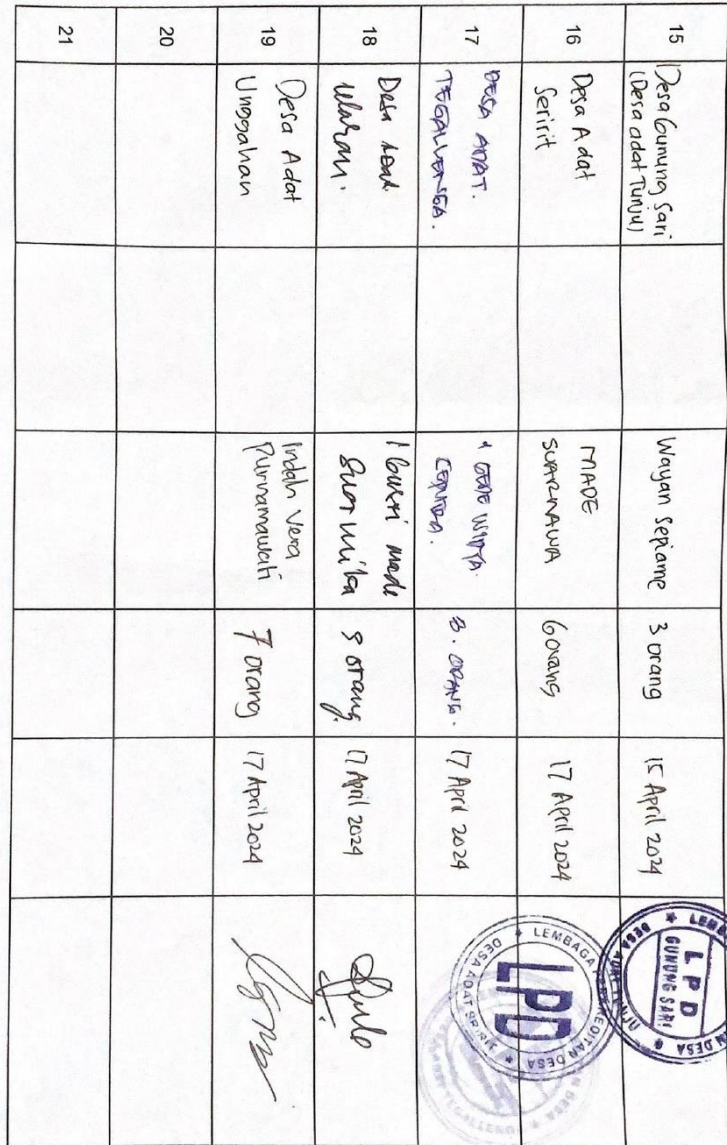 15
Desa Gunung Sari
(Desa adat Tunju)
Wayan Sepiame
3 orang
15 April 2024
LPD
GUNUNG SARI
16
Desa Adat
Seririt
MADE
SUARNAWA
6 orang
17 April 2024
LEMBAGA PERKREDITAN DESA
LPD
DESA ADAT SERIRIT
17
DESA ADAT.
TEGALLENGA.
GEDE WIRTA
3. ORANG.
17 April 2024
18
Desa Adat
Ularan.
made
Suarmika
17 April 2024
19
Desa Adat
Unggahan
Indah Vera
Purnamawati
7 orang
17 April 2024
20
21